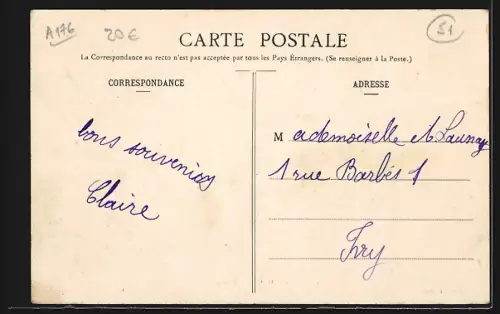 A176 20€ 51
CARTE POSTALE
La Correspondance au recto n'est pas acceptée par tous les Pays Étrangers. (Se renseigner à la Poste.)
CORRESPONDANCE
ADRESSE
bons souvenirs
Claire
Mademoiselle Launay
1 rue Barbès 1
Ivry